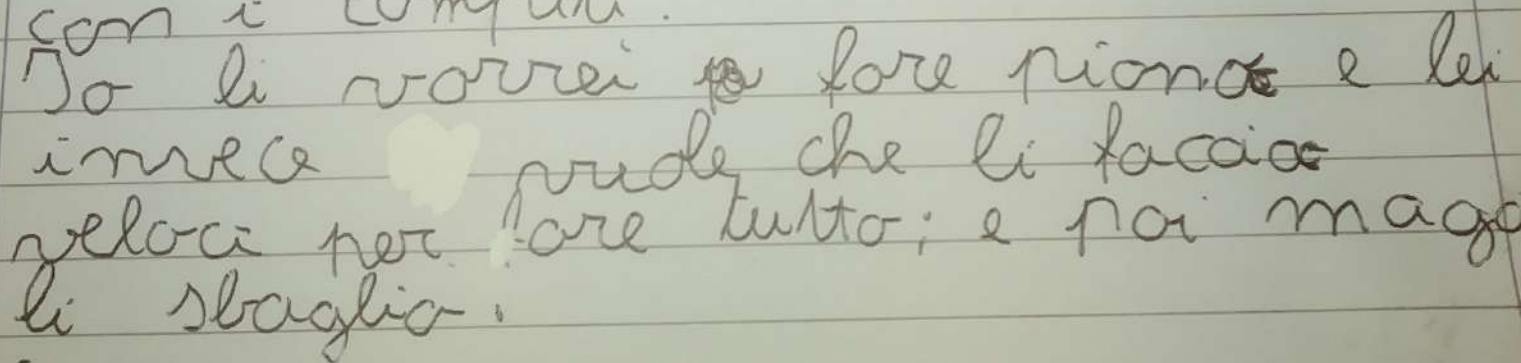 con i compiti.
Io li vorrei fare piano e lei
invece vuole che li faccia
veloci per fare tutto; e poi mago
li sbaglio.